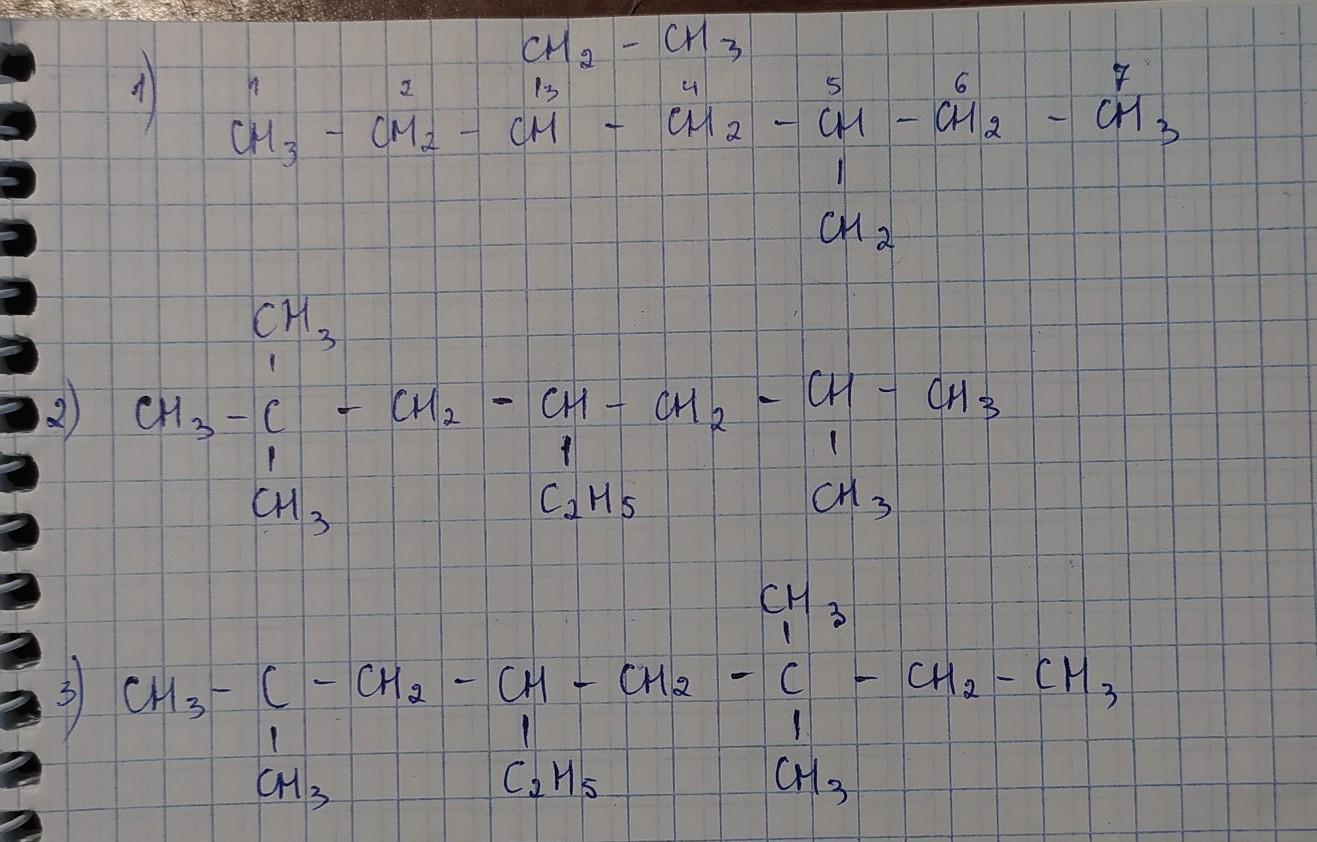 CH₂ - CH₃
1) 1 2 3 4 5 6 7
CH₃ - CH₂ - CH - CH₂ - CH - CH₂ - CH₃
|
CH₂
CH₃
|
2) CH₃ - C - CH₂ - CH - CH₂ - CH - CH₃
| | |
CH₃ C₂H₅ CH₃
CH₃
|
3) CH₃ - C - CH₂ - CH - CH₂ - C - CH₂ - CH₃
| | |
CH₃ C₂H₅ CH₃